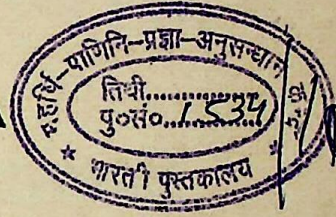 महर्षि-पाणिनि-प्रज्ञा-अनुसन्धान
तिथी..............
पु०सं०..1534
* भारती पुस्तकालय *